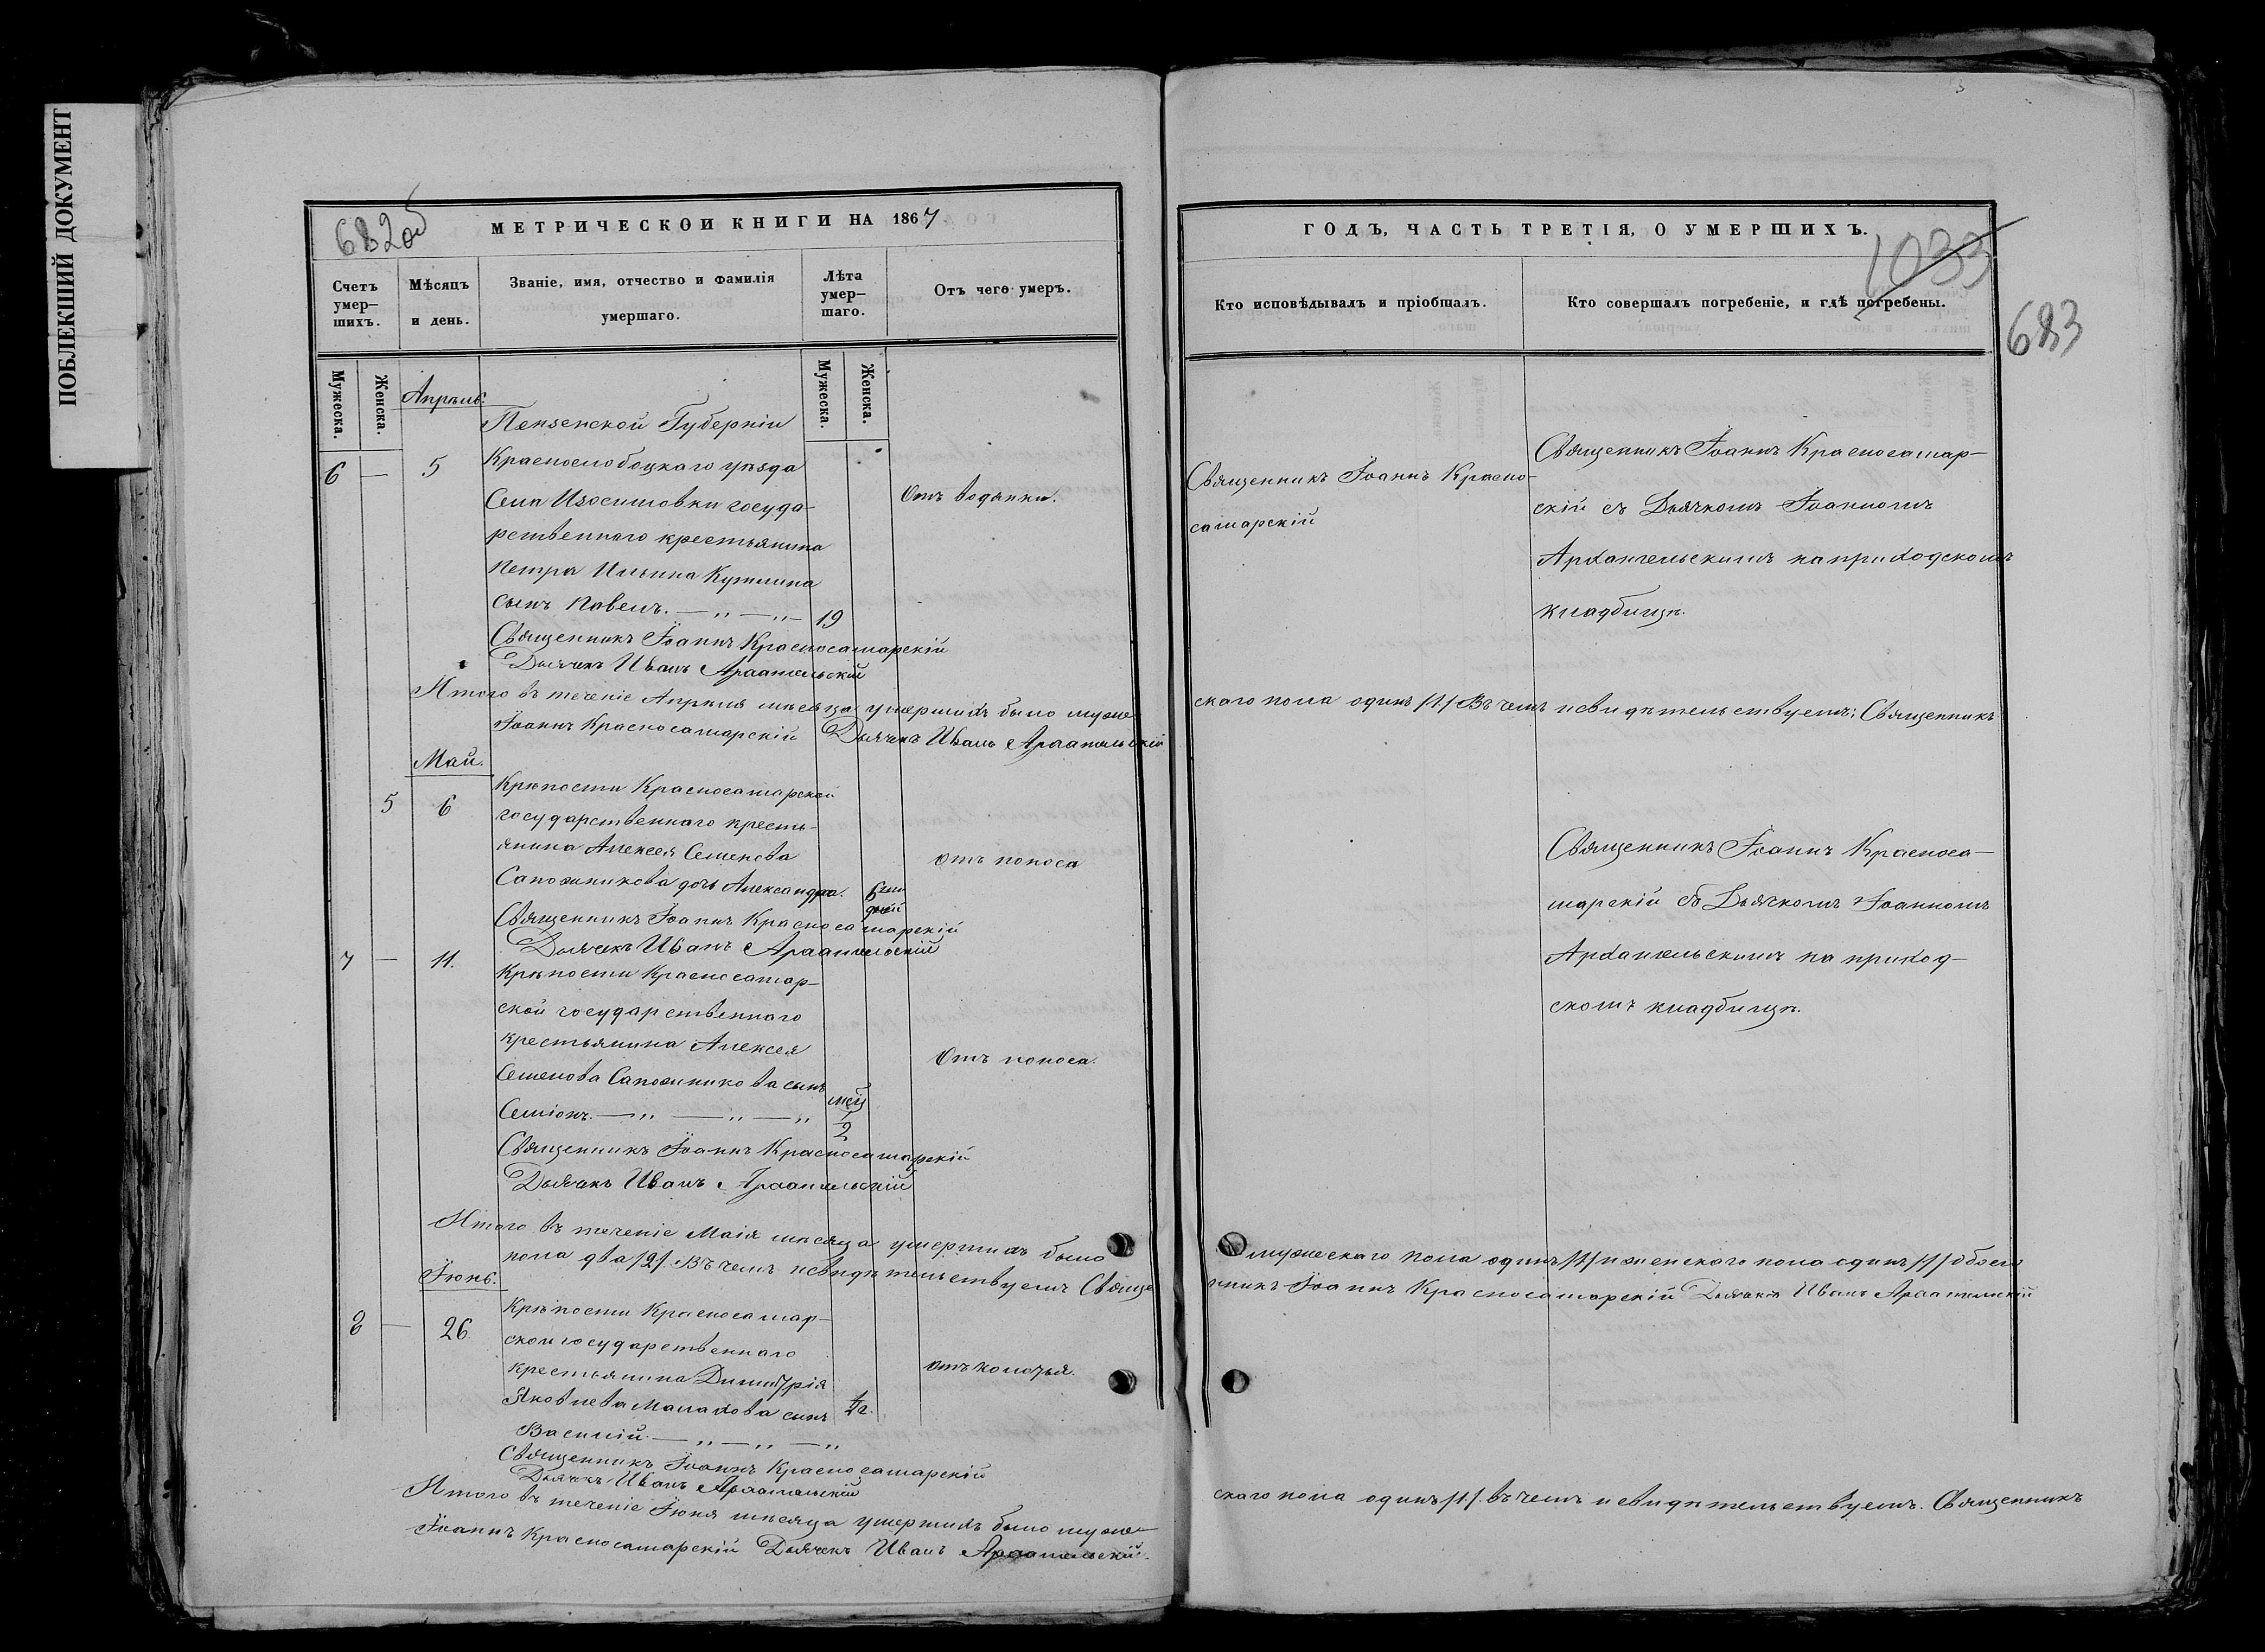 ПОБЛЕКШИЙ ДОКУМЕНТ
682об
МЕТРИЧЕСКОЙ КНИГИ НА 1867
Счетъ умер-шихъ.
Мѣсяцъ и день.
Званіе, имя, отчество и фамилія умершаго.
Лѣта умер-шаго.
Отъ чего умеръ.
Мужеска.
Женска.
Мужеска.
Женска.
Апрѣль.
Пензенской Губерніи
6 — 5 Краснослободскаго уѣзда
Села Изосимовки госуда-
Отъ водянки.
рственнаго крестьянина
Петра Ильина
сынъ Павелъ. — „ — „ — 19
Священникъ Іоаннъ Красносамарскій
Дьячекъ Иванъ Архангельскій
Итого въ теченіе Апрѣля мѣсяца умершихъ было муже-
Іоаннъ Красносамарскій Дьячекъ Иванъ Архангельскій
Май.
Крѣпости Красносамарской
5 6 государственнаго кресть-
янина Алексея Семенова
отъ поноса
Сапожникова дочь Александра.
дней
Священникъ Іоаннъ Красносамарскій
Дьячекъ Иванъ Архангельскій
7 — 11. Крѣпости Красносамар-
ской государственнаго
крестьянина Алексея
Отъ поноса.
Семенова Сапожникова сынъ
Семіонъ. — „ — „ — „
Священникъ Іоаннъ Красносамарскій
Дьячекъ Иванъ Архангельскій
Итого въ теченіе Маія мѣсяца умершихъ было
пола два /2/. Въ чемъ и свидѣтельствуемъ Свяще-
Іюнь.
Крѣпости Красносамар-
8 — 26. ской государственнаго
крестьянина Димитрія
отъ колотья.
Яковлева Малахова сынъ
Василій. — „ — „ — „
Священникъ Іоаннъ Красносамарскій
Дьячекъ Иванъ Архангельскій
Итого въ теченіе Іюня мѣсяца умершихъ было муже-
Іоаннъ Красносамарскій Дьячекъ Иванъ Архангельскій.
ГОДЪ, ЧАСТЬ ТРЕТІЯ, О УМЕРШИХЪ.
1033
683
Кто исповѣдывалъ и пріобщалъ.
Кто совершалъ погребеніе, и гдѣ погребены.
Священникъ Іоаннъ Красно-
самарскій
Священникъ Іоаннъ Красносамар-
скій съ Дьячкомъ Іоанномъ
Архангельскимъ на приходскомъ
кладбищѣ.
скаго пола одинъ /1/ Въ чемъ и свидѣтельствуемъ: Священникъ
Священникъ Іоаннъ Красноса-
марскій съ Дьячкомъ Іоанномъ
Архангельскимъ на приход-
скомъ кладбищѣ.
мужескаго пола одинъ /1/ и женскаго пола одинъ /1/ обоего
нникъ Іоаннъ Красносамарскій Дьячекъ Иванъ Архангельскій
скаго пола одинъ /1/. въ чемъ и свидѣтельствуемъ. Священникъ